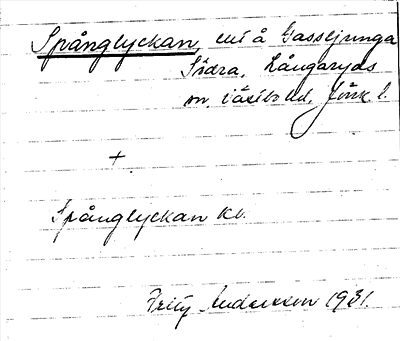 Spånglyckan, enl å Gassljunga
Södra, Långaryds
sn. Västbo hd. Jönk. l.
+
Spånglyckan kv.
Fritz Andersson 1931.